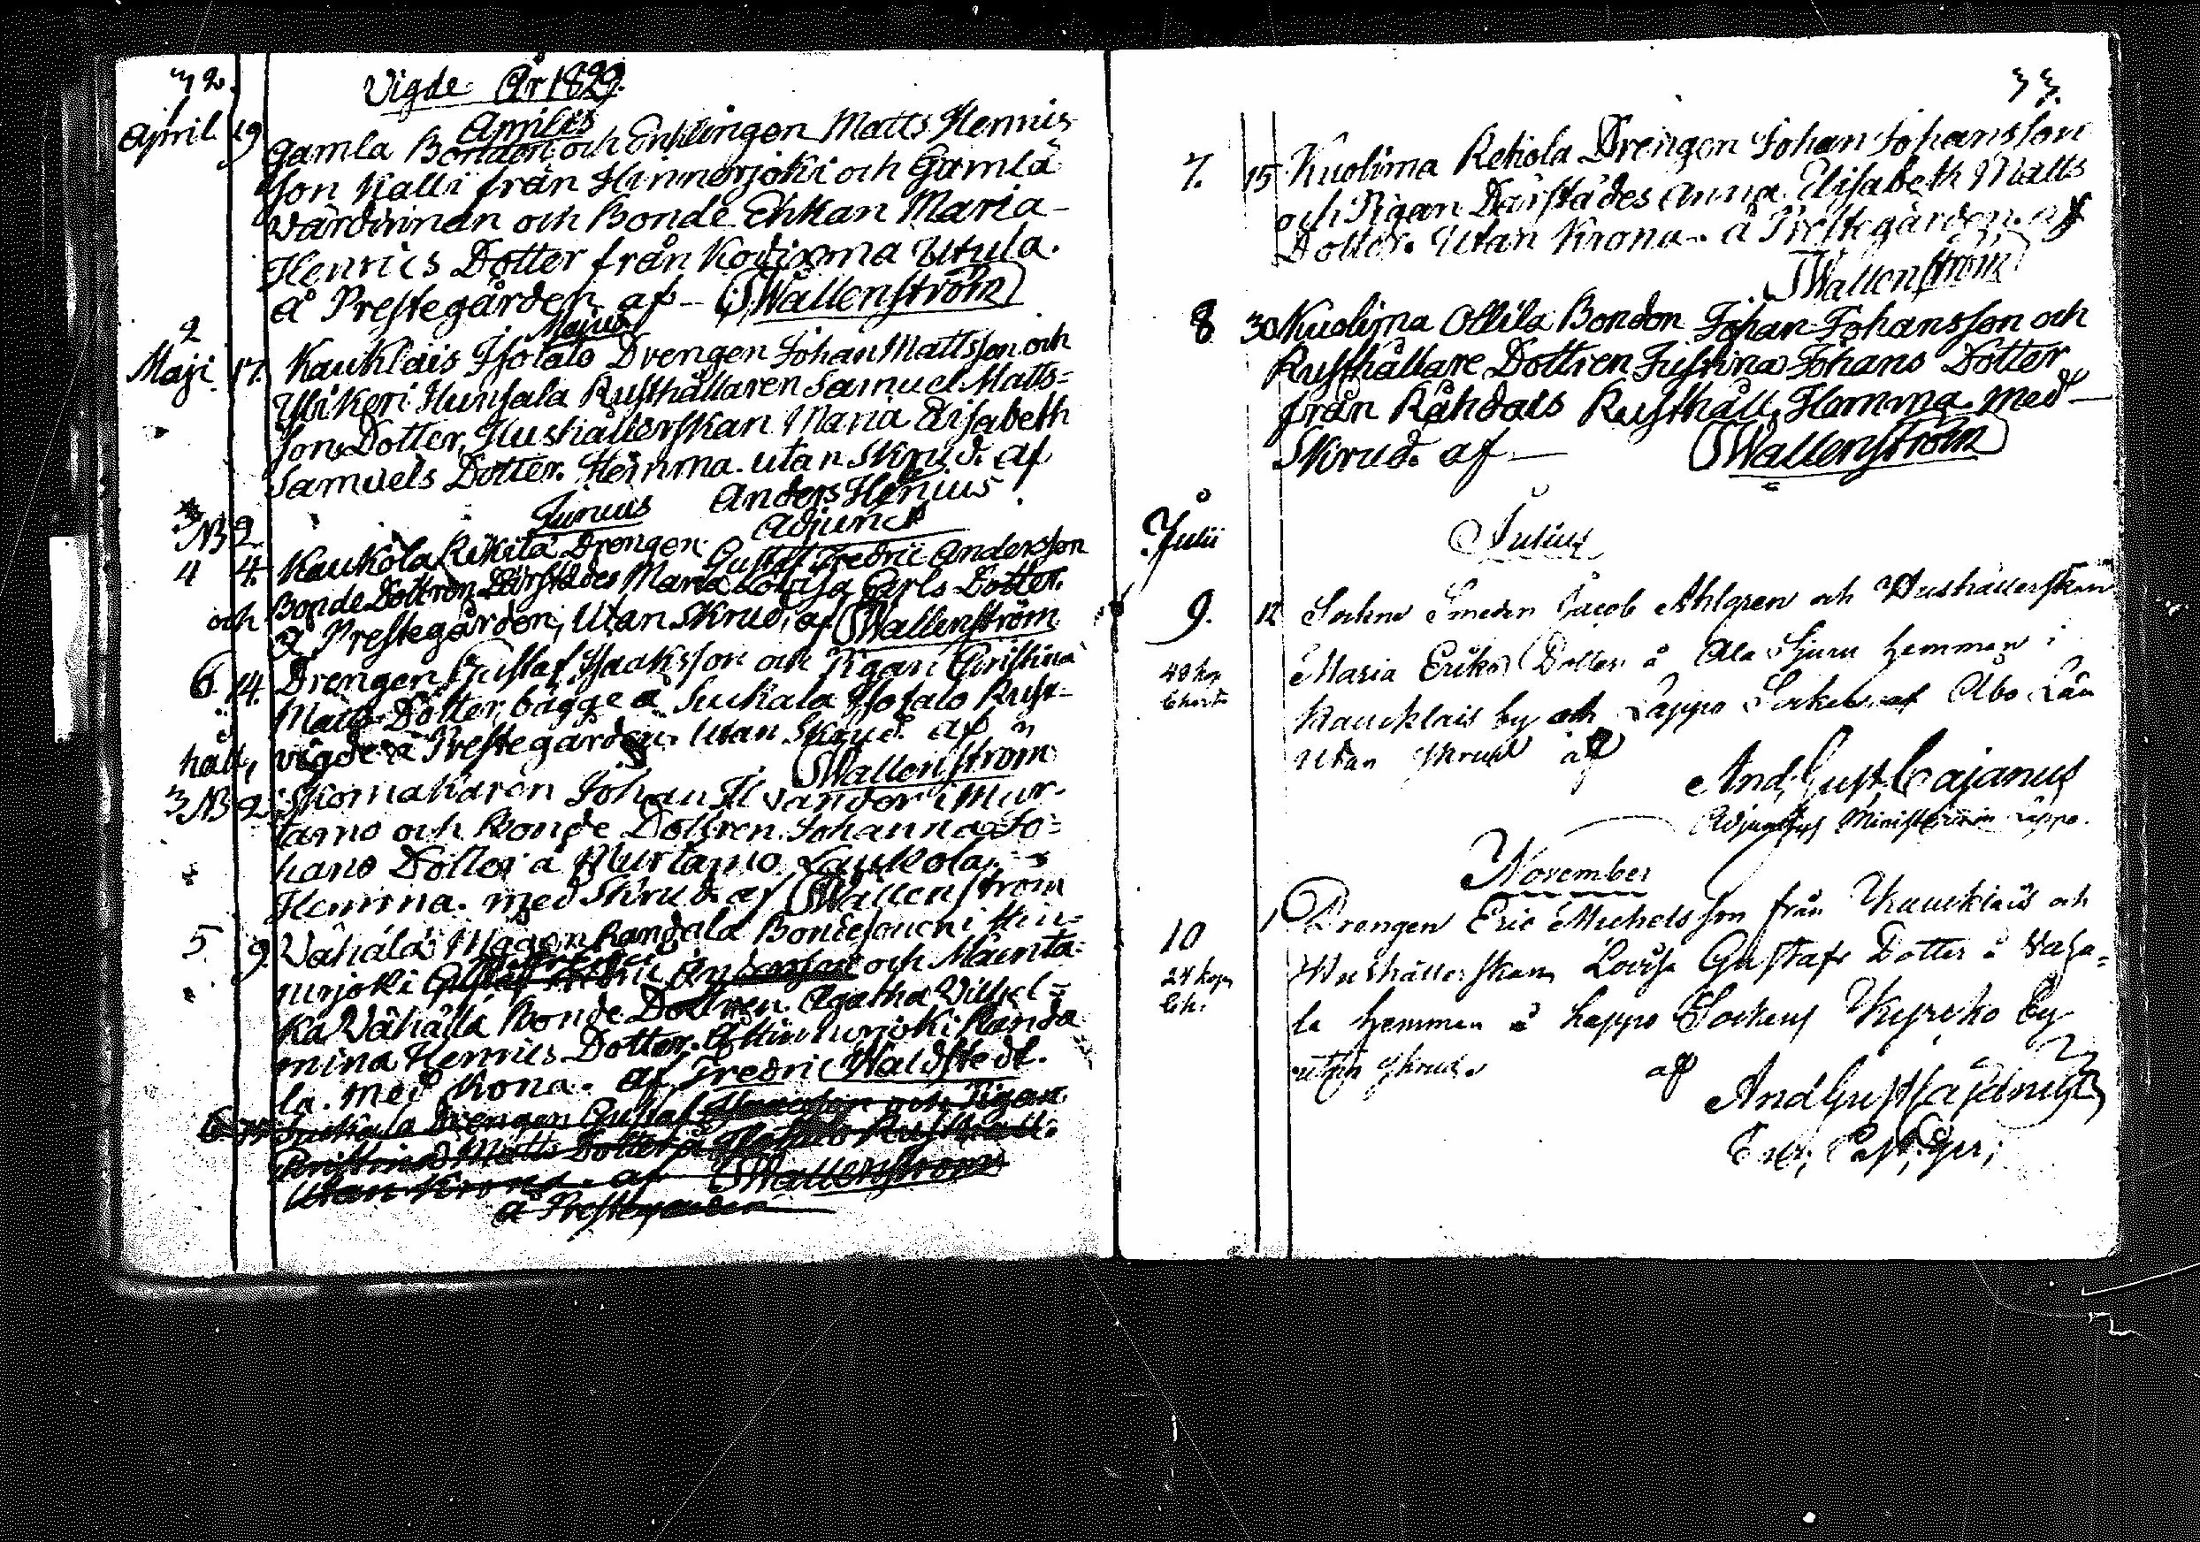 32.
Vigde År 1829.
Aprilis
1
April 19 Gamla Bonden och Enklingen Matts Henrics
son Kalli från Hinnerjoki och Gamla
Värdinnan och Bonde Enkan Maria
Henrics Dotter från Kodixma Utula.
å Prestegården af SWallenström
Majus
2
Maji 17. Kauklais Isotalo Drengen Johan Mattsson och
Hunsala Rusthållaren Samuel Matts=
sons Dotter, Hushållerskan Maria Elisabeth
Samuels Dotter. Hemma. utan Skrud. af
Anders Henius
Adjunct
Junius
3 NB 2
4 4. Kaukola Kikila Drengen Gustaf Fredric Andersson
och Bonde Dottren Därstädes Maria Lovisa Carls Dotter.
å Prestegården, Utan Skrud, af SWallenström
6. 14. Drengen Gustaf Isaksson och Pigan Christina
Matts Dotter, bägge å Suckala Isotalo Rust-
håll, vigde å Prestegården. Utan Skrud. af
SWallenström
3 NB 2. Skomakaren Johan i Mur-
tamo och Bonde Dottren Johanna Jo=
hans Dotter å Murtamo Laukola.
Hemma. med Skrud. af SWallenström
5. 9. Vähälä Randala Bondesonen i Hin-
nerjoki Gustaf Fredric Andersson och Mäenta=
ka Vähälä Bonde Dottren Agatha Vilhel=
mina Henrics Dotter. å Hinnerjoki Randa
la. med Krona. af Fredric Waldstedt.
6. Suckala Drengen Gustaf Isacsson och Pigan
Christina Matts Dotter å Isotalo Rusthåll.
Utan Krona. af SWallenström
å Prestegården
33.
7. 15 Kuolima Rekola Drengen Johan Johansson
och Pigan Därstädes Anna Elisabeth Matts
Dotter. Utan Krona. å Prestegården. af
SWallenström
8 30 Kuolima Ollila Bonden Johan Johansson och
Rusthållare Dottren Justina Johans Dotter
från Rusthåll, Hemma. med
Skrud. af SWallenström
Julii
Julius
9. 12 Sockne Smeden Jacob Ahlgren och Hushållerskan
48 kop Maria Eriks Dotter å Ala Sjuru hemman i
Kaucklais by och Lappo Socken af Åbo Län
utan skrud af
And. Gust. Cajanus
Adjunctus Ministerii in Lappo.
November
10 1 Drengen Eric Michelsson från Kaucklais och
24 kop Hushållerskan Lovisa Gustafs Dotter å
la hemman å Lappo Sockens Kyroko by
utan skrud. af
And Gust Cajanus